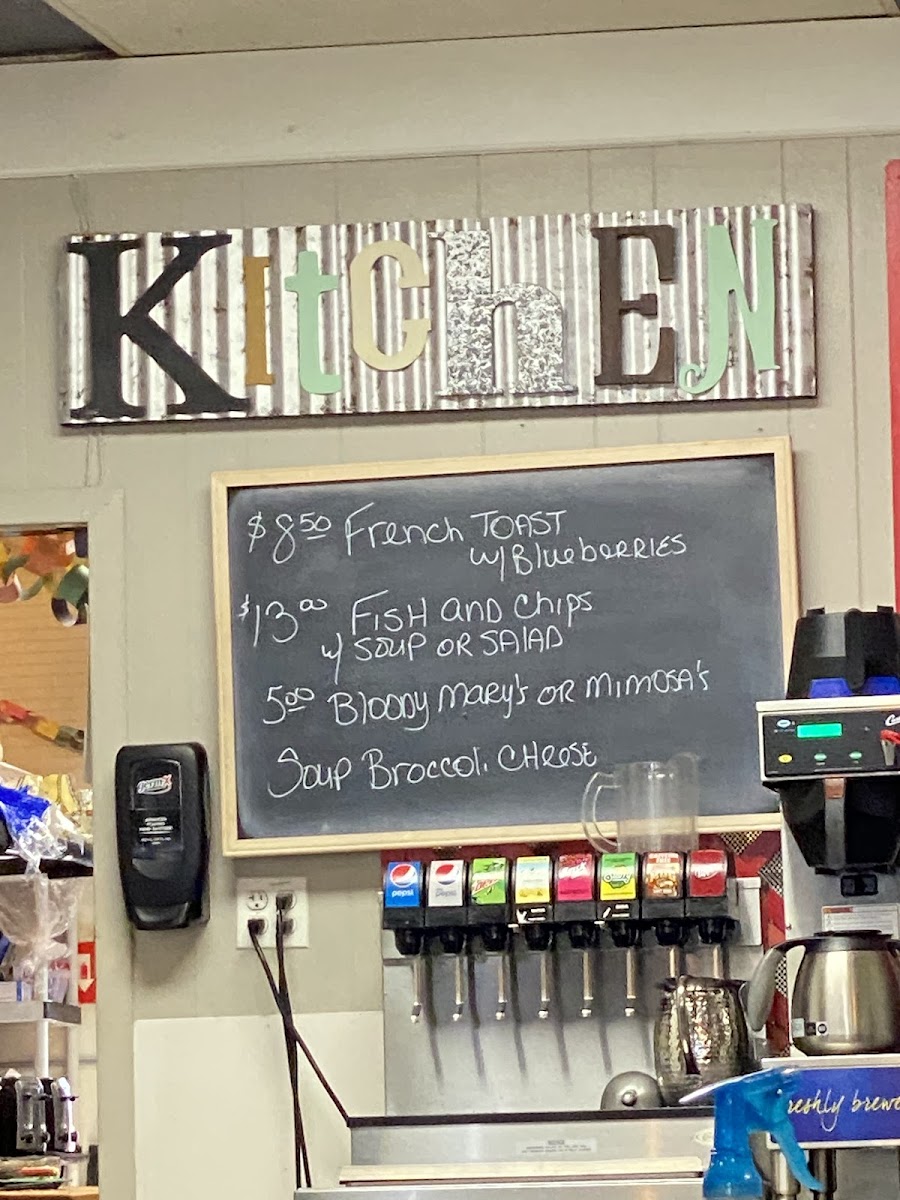 KitchEN
$8.50 French TOAST
w/ BlueberrIES
$13.00 FISH and Chips
w/ SOUP OR SALAD
5.00 Bloody Mary's OR MIMOSA'S
Soup Broccoli CHeese
pepsi
Freshly brewe